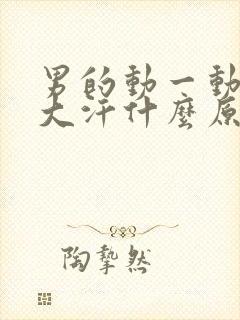 男的動一動
大汗什麼原
陶摯然